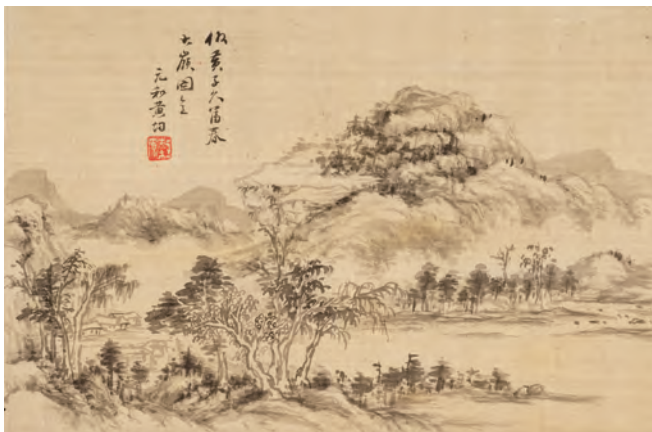 仿黃子久富春
大嶺圖意
元和黃均